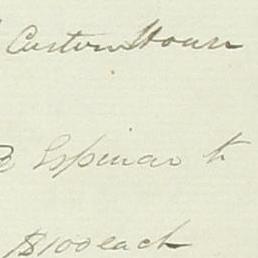 Custom House
Espinar to
$100 each